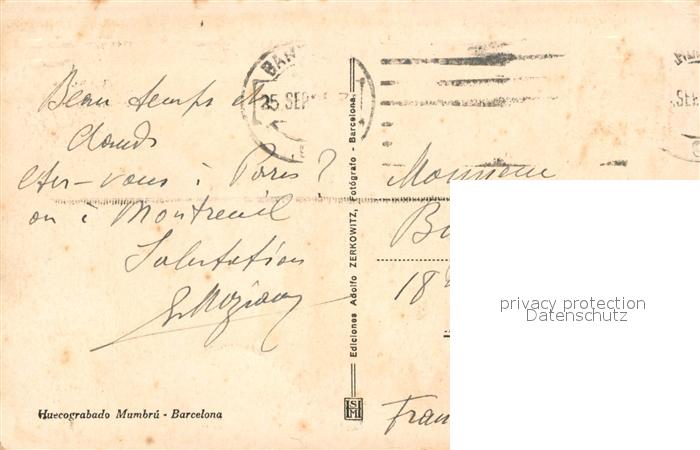 Beau temps et
chauds
êtes-vous à Paris ?
ou à Montreuil
Salutation
BAR
25 SEP
SEP
Ediciones Adolfo ZERKOWITZ, Fotógrafo - Barcelona.
Monsieur
18
Fran
Huecograbado Mumbrú - Barcelona
privacy protection
Datenschutz